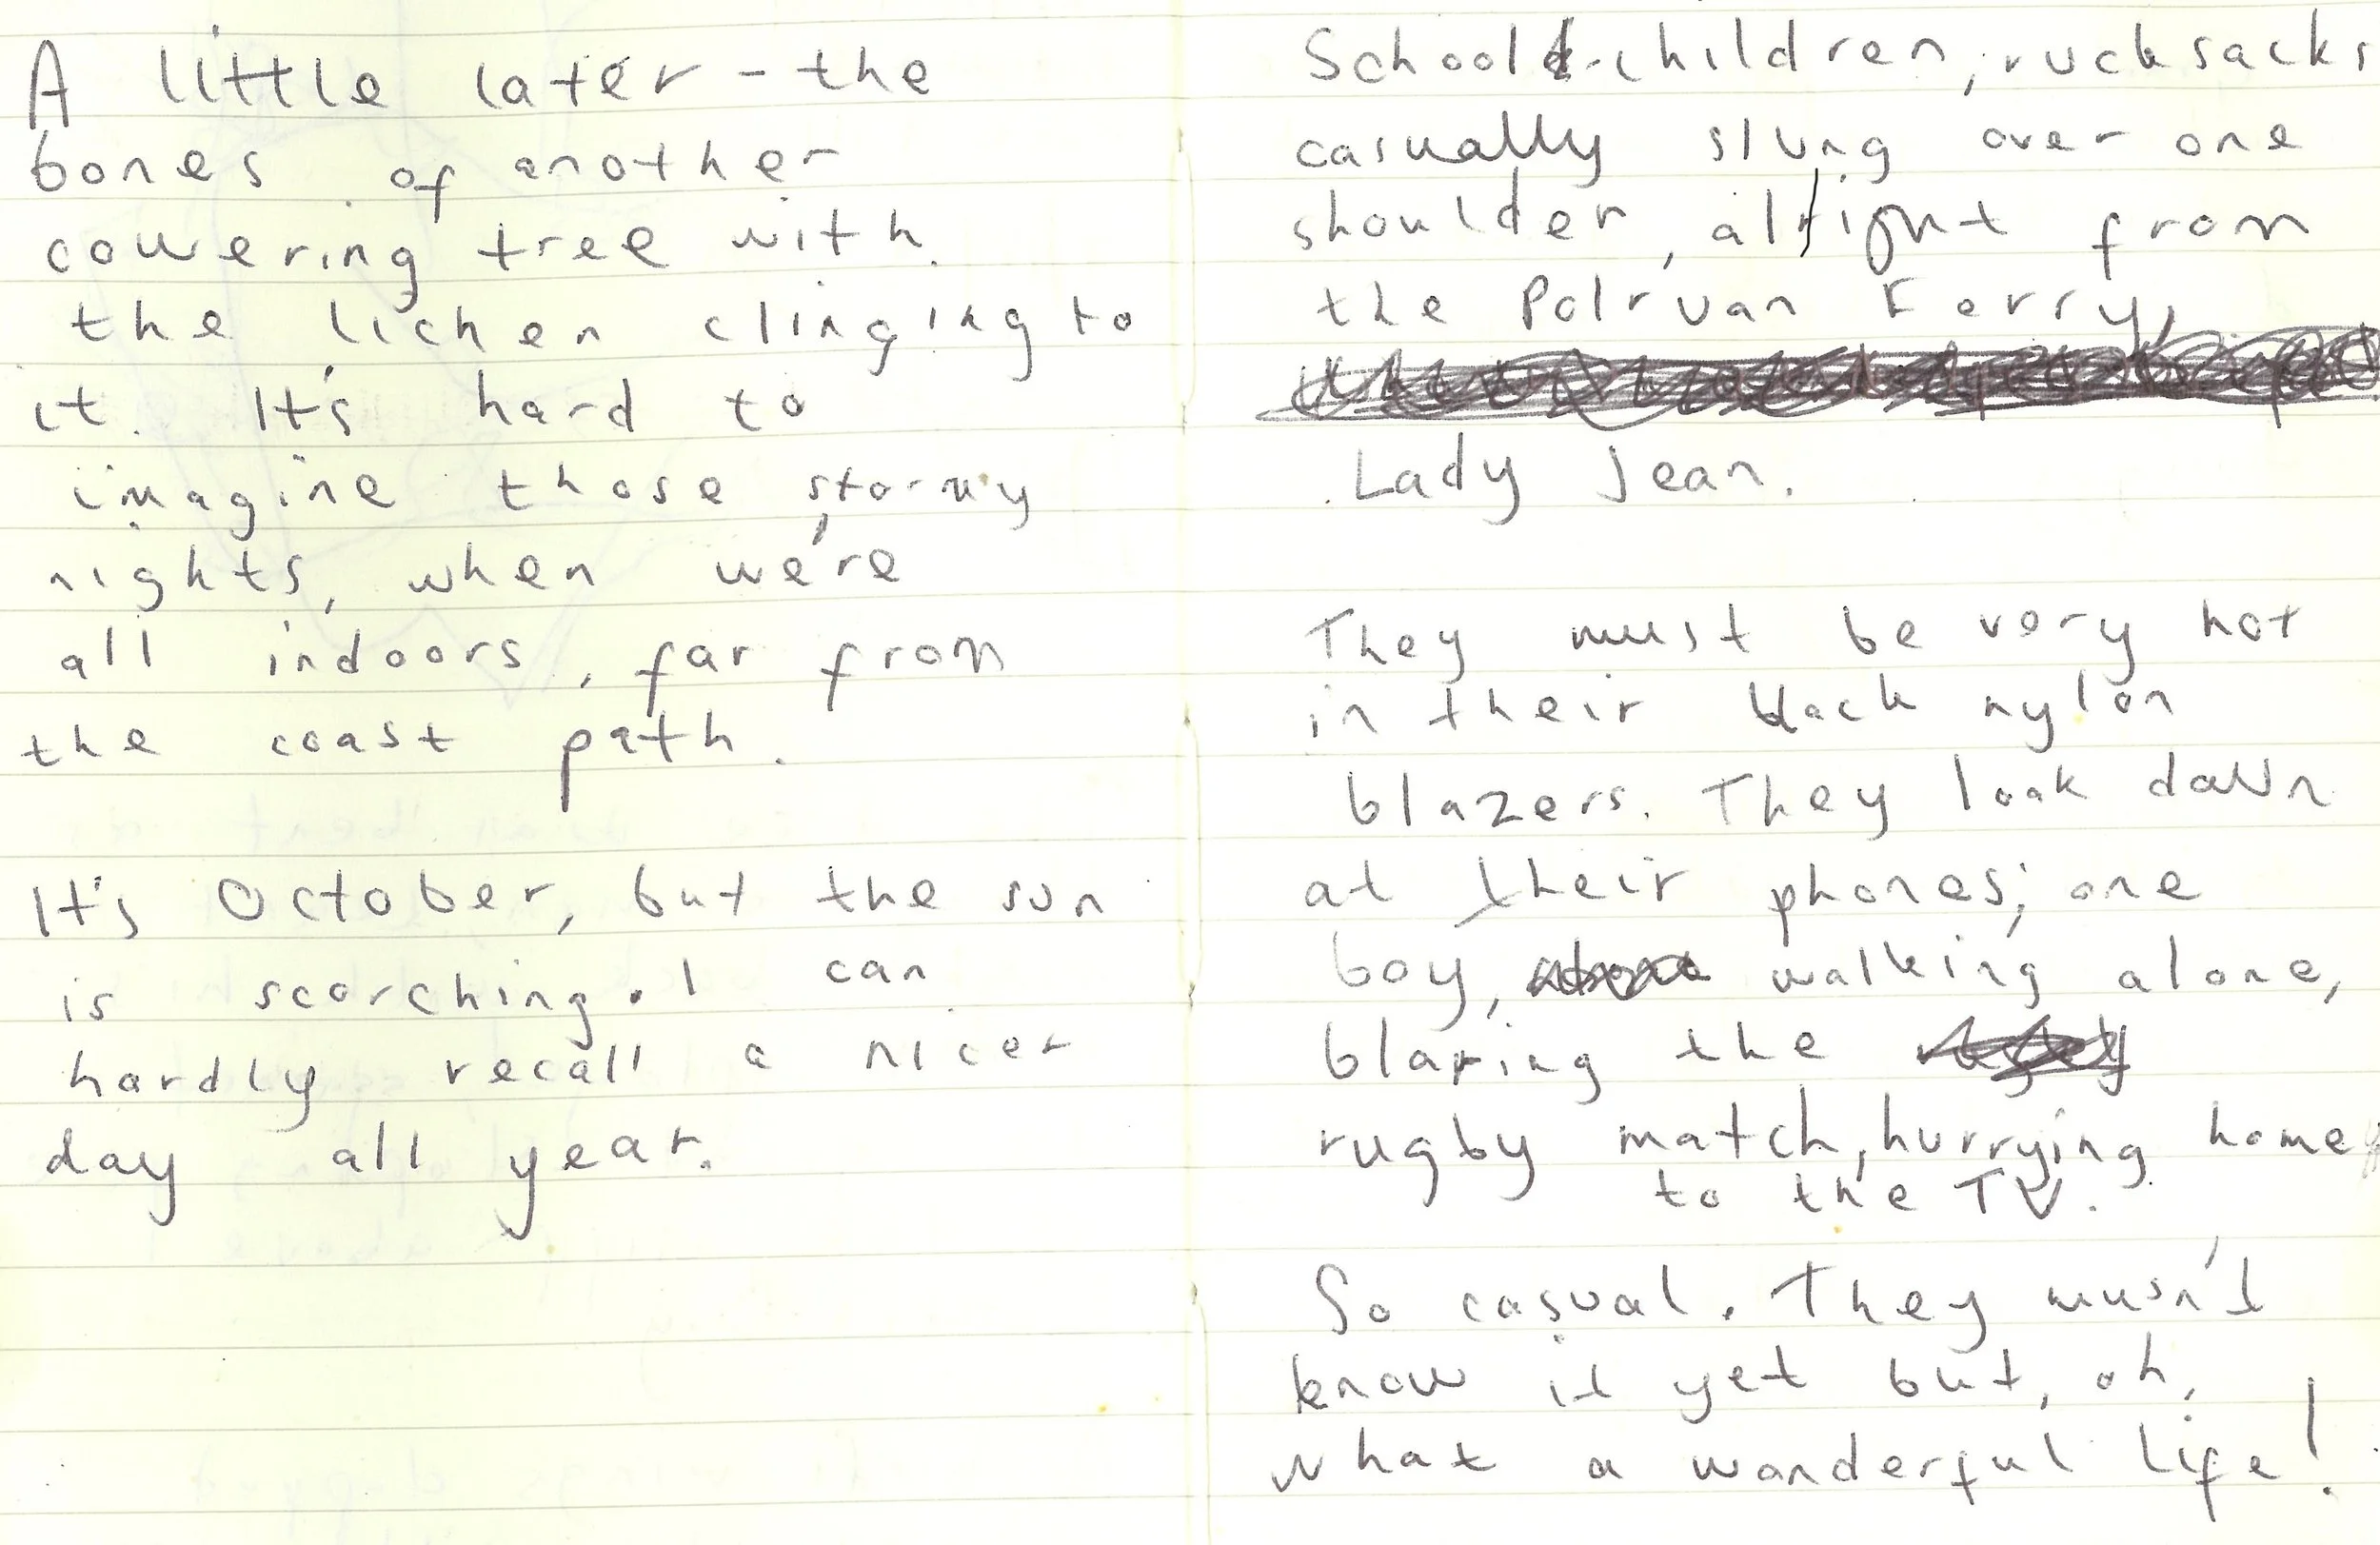 A little later - the
bones of another
cowering tree with
the lichen clinging to
it. It's hard to
imagine those stormy
nights, when we're
all indoors, far from
the coast path.
It's October, but the sun
is scorching. I can
hardly recall a nicer
day all year.
School children, rucksacks
casually slung over one
shoulder, alright from
the Polruan Ferry,
Lady Jean.
They must be very hot
in their black nylon
blazers. They look down
at their phones; one
boy, walking alone,
blaring the
rugby match, hurrying home
to the TV.
So casual. They musn't
know it yet but, oh,
what a wonderful life!